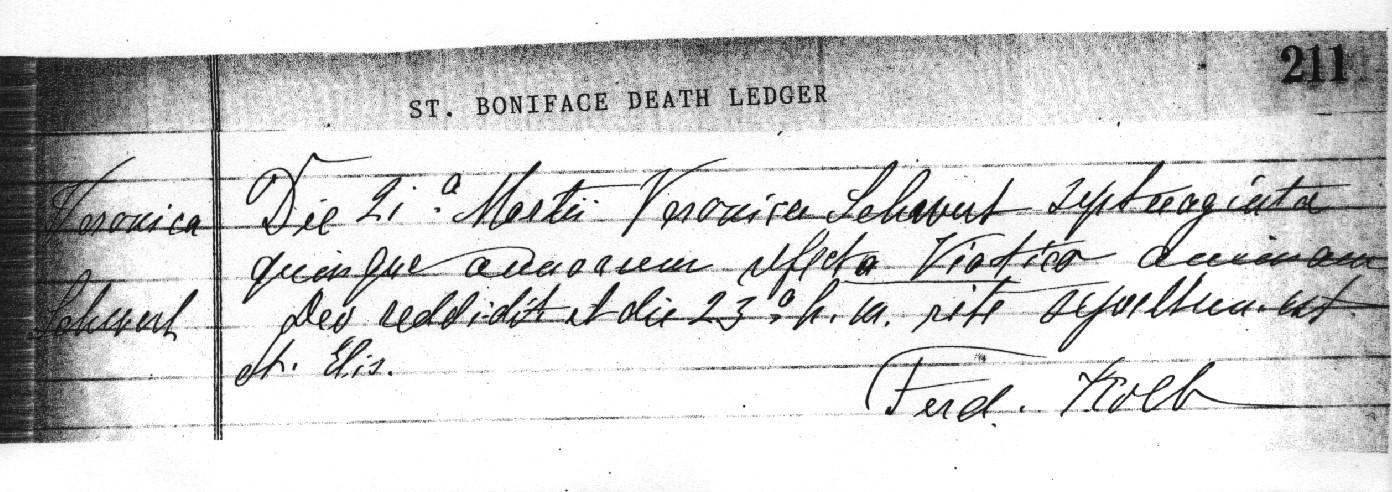 211
ST. BONIFACE DEATH LEDGER
Veronica
Schwert
Die 21ª Martii Veronica Schwert septuaginta
quinque annorum refecta Viatico animam
Deo reddidit et die 23ª h. m. rite sepultum. est.
St. Elis.
Ferd. Kolb